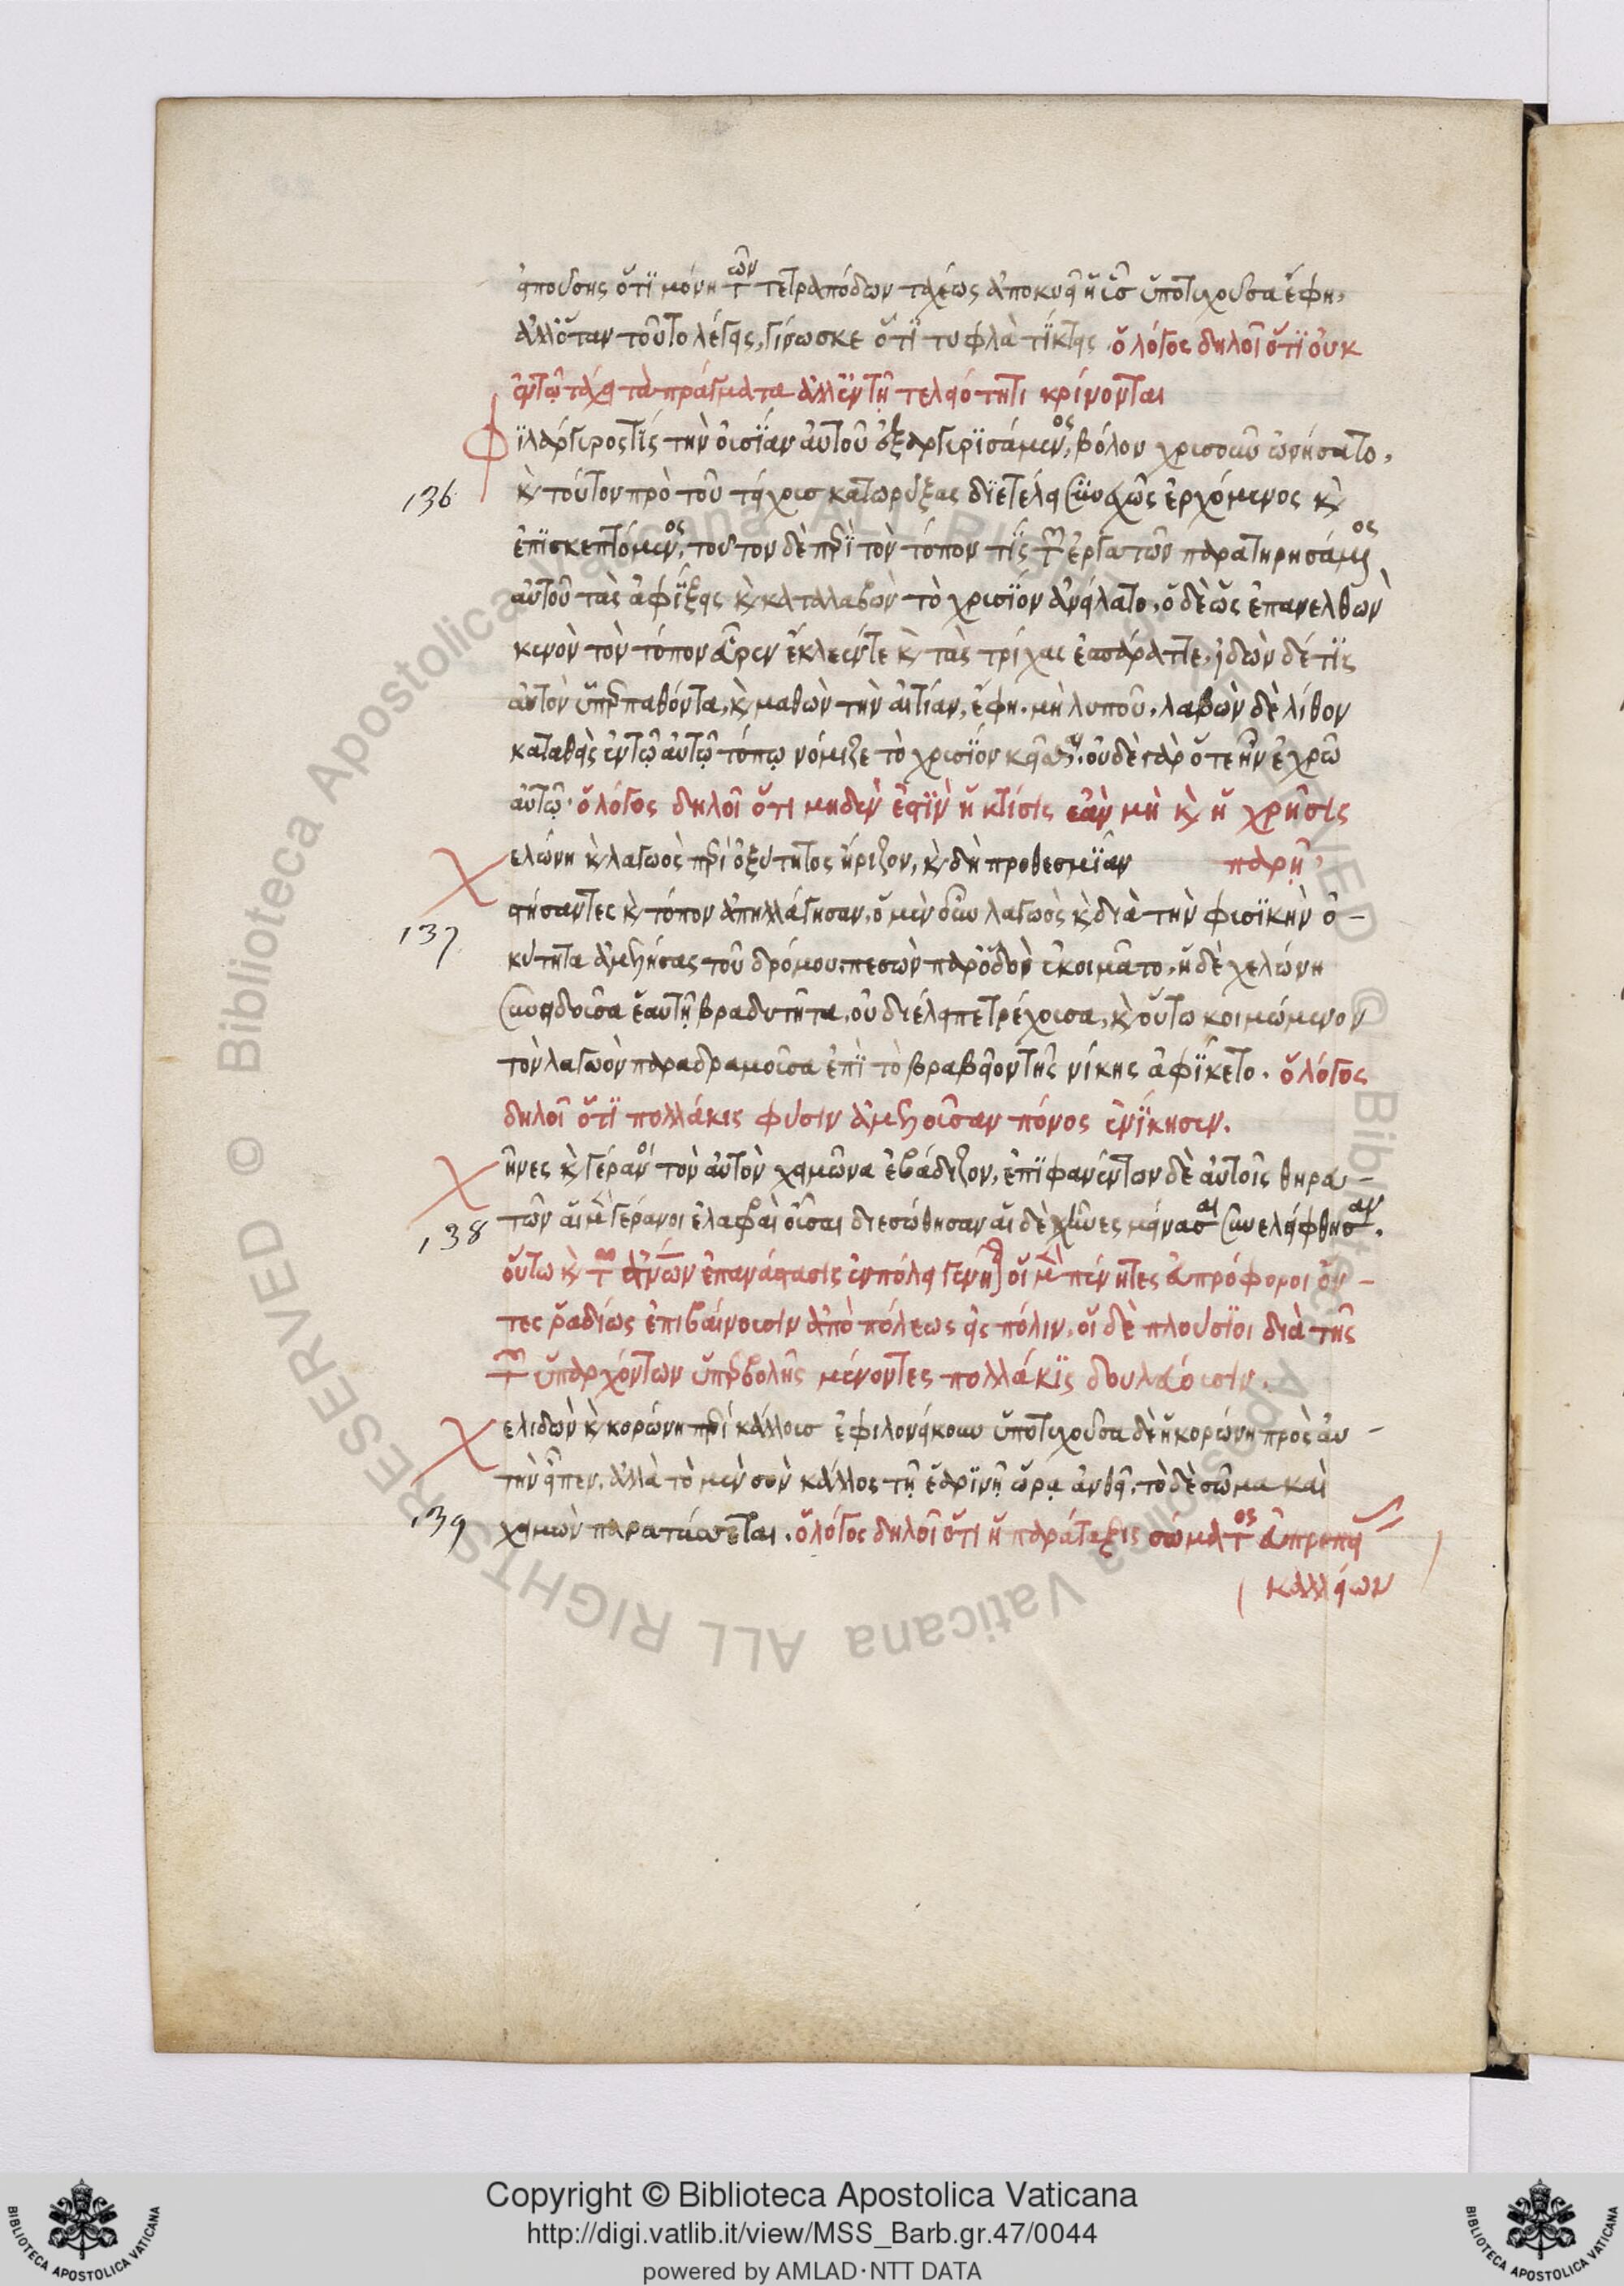 εἰπούσης ὅτι μόνη τῶν τετραπόδων ταχέως ἀποκυεῖ ἡ ὗς ὑποτυχοῦσα ἔφη,
ἀλλ' ὅταν τοῦτο λέγεις, γίνωσκε ὅτι τυφλὰ τίκτεις. ὁ λόγος δηλοῖ ὅτι οὐκ
ἐν τῷ τάχει τὰ πράγματα ἀλλ' ἐν τῇ τελειότητι κρίνονται
Φιλάργυρός τις τὴν οὐσίαν αὐτοῦ ἐξαργυρισάμενος, βόλον χρυσοῦν ὠνήσατο,
136
καὶ τοῦτον πρὸ τοῦ τείχους κατωρύξας διετέλει συνεχῶς ἐρχόμενος καὶ
ἐπισκεπτόμενος, τοῦτον δὲ περὶ τὸν τόπον τὶς τῶν ἐργατῶν παρατηρησάμενος
αὐτοῦ τὰς ἀφίξεις καὶ καταλαβὼν τὸ χρυσίον ἀνείλατο, ὁ δὲ ὡς ἐπανελθὼν
κενὸν τὸν τόπον εὗρεν ἔκλεέν τε καὶ τὰς τρίχας ἐσπάραττε, ἰδὼν δέ τις
αὐτὸν ὑπερπαθόντα, καὶ μαθὼν τὴν αἰτίαν, ἔφη. μὴ λυποῦ, λαβὼν δὲ λίθον
καταθεὶς ἐν τῷ αὐτῷ τόπῳ νόμιζε τὸ χρυσίον κεῖσθαι. οὐδὲ γὰρ ὅτε ἦν ἐχρῶ
αὐτῷ. ὁ λόγος δηλοῖ ὅτι μηδὲν ἐστὶν ἡ κτίσις ἐὰν μὴ καὶ ἡ χρῆσις
παρῇ.
Χελώνη καὶ λαγωὸς περὶ ὀξύτητος ἤριζον, καὶ δὴ προθεσμίαν
137
στήσαντες καὶ τόπον ἀπηλλάγησαν. ὁ μὲν οὖν λαγωὸς καὶ διὰ τὴν φυσικὴν ὀ-
κύτητα ἀμελήσας τοῦ δρόμου, πεσὼν παρ' ὁδὸν ἐκοιμᾶτο, ἡ δὲ χελώνη
συνειδοῖσα ἑαυτῇ βραδυτῆτα, οὐ διέλειπε τρέχουσα, καὶ οὕτω κοιμώμενον
τὸν λαγωὸν παραδραμοῦσα ἐπὶ τὸ βραβεῖον τῆς νίκης ἀφίκετο. ὁ λόγος
δηλοῖ ὅτι πολλάκις φύσιν ἀμελοῦσαν πόνος ἐνίκησεν.
Χῆνες καὶ γέρανοι τὸν αὐτὸν χειμῶνα ἐβάδιζον, ἐπιφανέντων δὲ αὐτοῖς θηρευ-
138
τῶν αἱ μὲν γέρανοι ἐλαφραὶ οὖσαι διεσώθησαν αἱ δὲ χῆνες μείνασαι συνελήφθησαν.
οὕτω καὶ τῶν ἀνῶν ἐπανάστασις ἐν πόλει γένηται οἱ μὲν πένητες εὐπρόφοροι ὄν-
τες ῥαδίως ἐπιβαίνουσιν ἀπὸ πόλεως εἰς πόλιν, οἱ δὲ πλούσιοι διὰ τῆς
τῶν ὑπαρχόντων ὑπερβολῆς μένοντες πολλάκις δουλεύουσιν.
Χελιδὼν καὶ κορώνη περὶ κάλλους ἐφιλονείκουν ὑποτυχοῦσα δὲ ἡ κορώνη πρὸς αὐ-
τὴν εἶπεν, ἀλλὰ τὸ μὲν σὸν κάλλος τῇ ἐαρινῇ ὥρᾳ ἀνθεῖ, τὸ δὲ σῶμα καὶ
139
χειμῶν παρατείνεται. ὁ λόγος δηλοῖ ὅτι ἡ παράταξις σώματος εὐπρεπεί
καλλείων
Copyright © Biblioteca Apostolica Vaticana
http://digi.vatlib.it/view/MSS_Barb.gr.47/0044
powered by AMLAD·NTT DATA